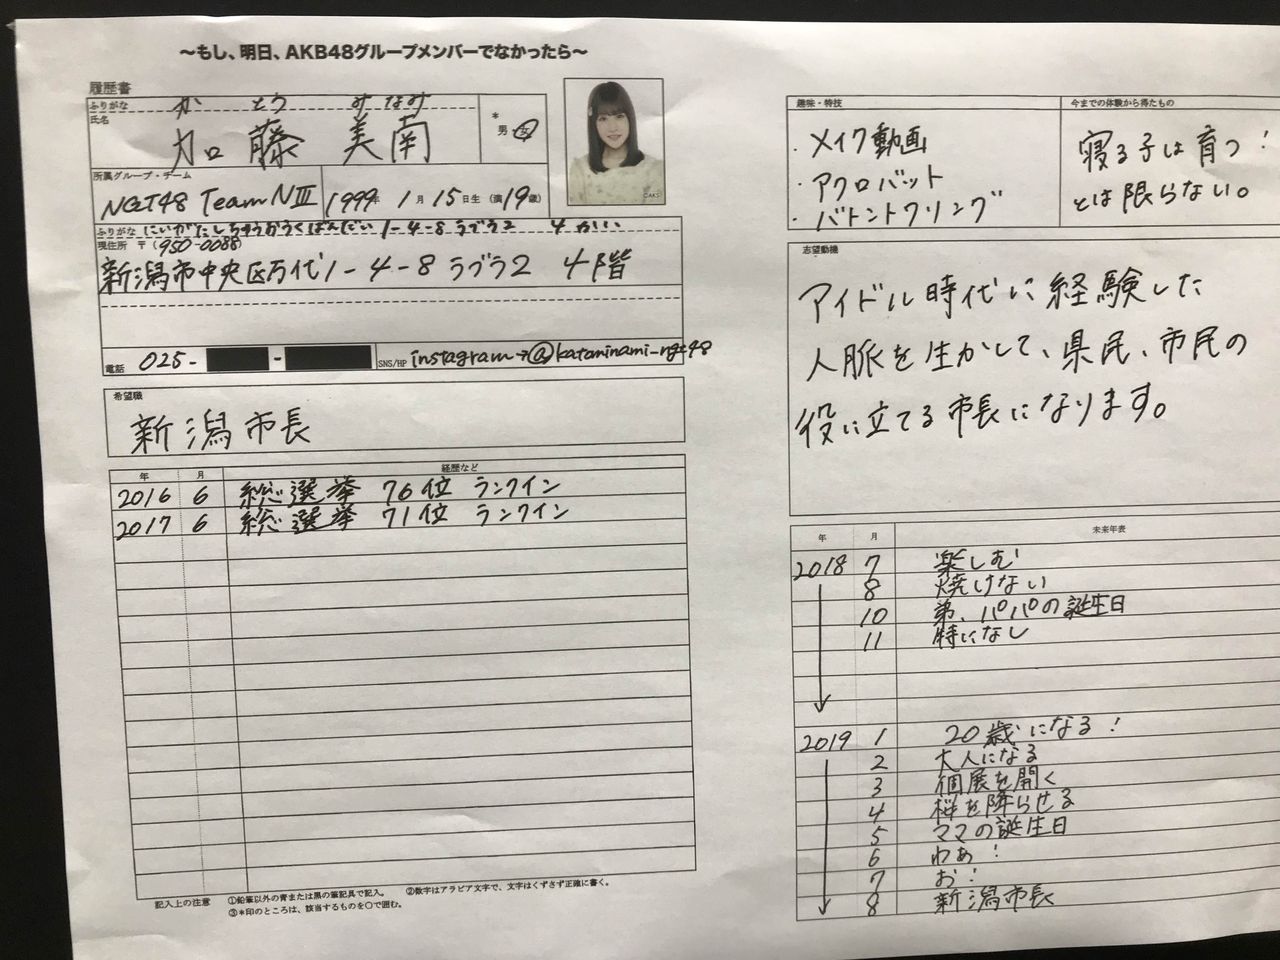 ～もし、明日、AKB48グループメンバーでなかったら～
履歴書
ふりがな かとう みなみ
氏名 加藤 美南
* 男 女
所属グループ・チーム
NGT48 Team NⅢ
1999年 1月 15日生 (満19歳)
ふりがな にいがたしちゅうおうくばんだい 1-4-8 ラブラ2 4かい
現住所 〒(950-0088)
新潟市中央区万代1-4-8 ラブラ2 4階
電話 025- -
SNS/HP instagram→@katominami_ngt48
希望職
新潟市長
年 月 経歴など
2016 6 総選挙 76位 ランクイン
2017 6 総選挙 71位 ランクイン
記入上の注意 ①鉛筆以外の青または黒の筆記具で記入。 ②数字はアラビア文字で、文字はくずさず正確に書く。
③*印のところは、該当するものを○で囲む。
趣味・特技
・メイク動画
・アクロバット
・バトントワリング
今までの体験から得たもの
寝る子は育つ!
とは限らない。
志望動機
アイドル時代に経験した
人脈を生かして、県民、市民の
役に立てる市長になります。
年 月 未来年表
2018 7 楽しむ
8 焼けない
10 弟、パパの誕生日
11 特になし
2019 1 20歳になる!
2 大人になる
3 個展を開く
4 桜を降らせる
5 ママの誕生日
6 わぁ!
7 お!
8 新潟市長